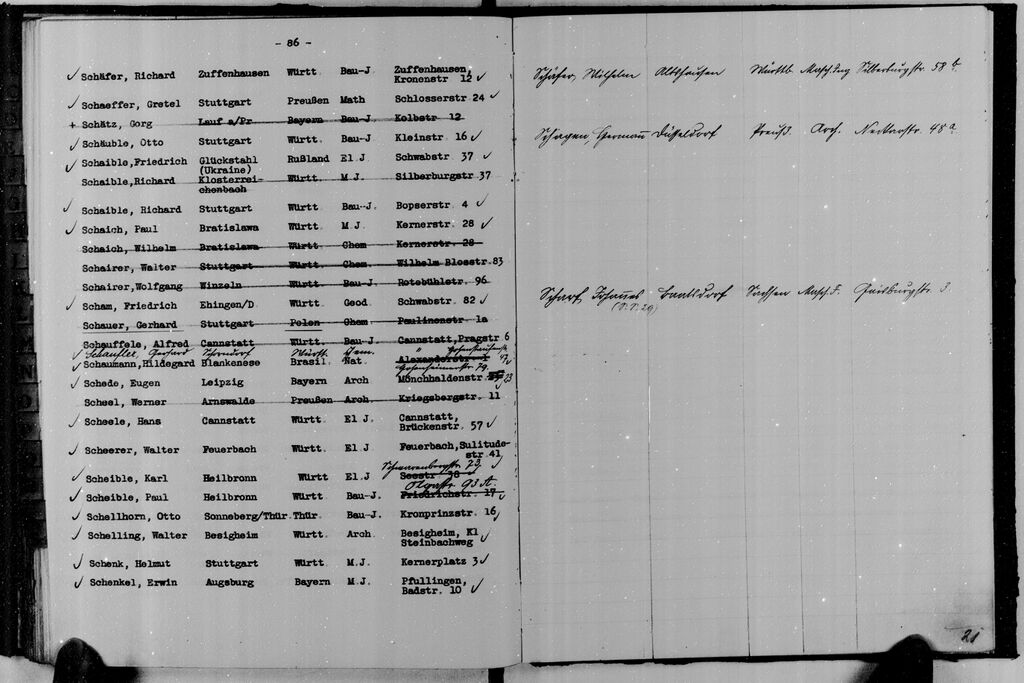 - 86 -
✓ Schäfer, Richard Zuffenhausen Württ Bau-J Zuffenhausen,
Kronenstr 12 ✓
✓ Schaeffer, Gretel Stuttgart Preußen Math Schlosserstr 24 ✓
+ Schätz, Gorg Lauf a/Pr Bayern Bau-J Kolbstr 12
✓ Schäuble, Otto Stuttgart Württ Bau-J Kleinstr 16 ✓
✓ Schaible,Friedrich Glückstahl Rußland El J Schwabstr 37 ✓
(Ukraine)
Schaible,Richard Klosterrei- Württ. M J. Silberburgstr 37
chenbach
✓ Schaible, Richard Stuttgart Württ Bau-J. Bopserstr 4 ✓
✓ Schaich, Paul Bratislawa Württ M J. Kernerstr 28 ✓
Schaich, Wilhelm Bratislawa Württ. Chem Kernerstr. 28
Schairer, Walter Stuttgart Württ Chem. Wilhelm Blosstr.83
Schairer,Wolfgang Winzeln Württ. Bau-J. Rotebühlstr. 96
✓ Scham, Friedrich Ehingen/D Württ Geod Schwabstr 82 ✓
Schauer, Gerhard Stuttgart Polen Chem Paulinenstr 1a
Schauffele, Alfred Cannstatt Württ. Bau-J. Cannstatt,Pragstr 6
✓ Schaufler, Gerhard Württ.
✓ Schaumann,Hildegard Blankenese Brasil Nat. Alexanderstr
Hohenheimerstr 79.
✓ Schede, Eugen Leipzig Bayern Arch Mönchhaldenstr 23
Scheel, Werner Arnswalde Preußen Arch. Kriegsbergstr. 11
✓ Scheele, Hans Cannstatt Württ. El J. Cannstatt,
Brückenstr. 57 ✓
✓ Scheerer, Walter Feuerbach Württ. El J Feuerbach,Sulitude-
str 41
Schwarenbergstr 73
✓ Scheible, Karl Heilbronn Württ El J Seestr 38
✓ Scheible, Paul Heilbronn Württ Bau-J. Friedrichstr. 17
✓ Schellhorn, Otto Sonneberg/Thür. Thür. Bau-J. Kronprinzstr. 16 ✓
✓ Schelling, Walter Besigheim Württ. Arch. Besigheim, Kl ✓
Steinbachweg
✓ Schenk, Helmut Stuttgart Württ. M.J. Kernerplatz 3 ✓
✓ Schenkel, Erwin Augsburg Bayern M J. Pfullingen,
Badstr. 10 ✓
Schäfer, Wilhelm Altshausen Württb Masch.Ing Silberburgstr. 58 b.
Schagen, Hermann Düsseldorf Preuß. Arch. Neckarstr. 48a
Scharf, Johannes Sachsen Masch.J. Gaisburgstr. 3
21